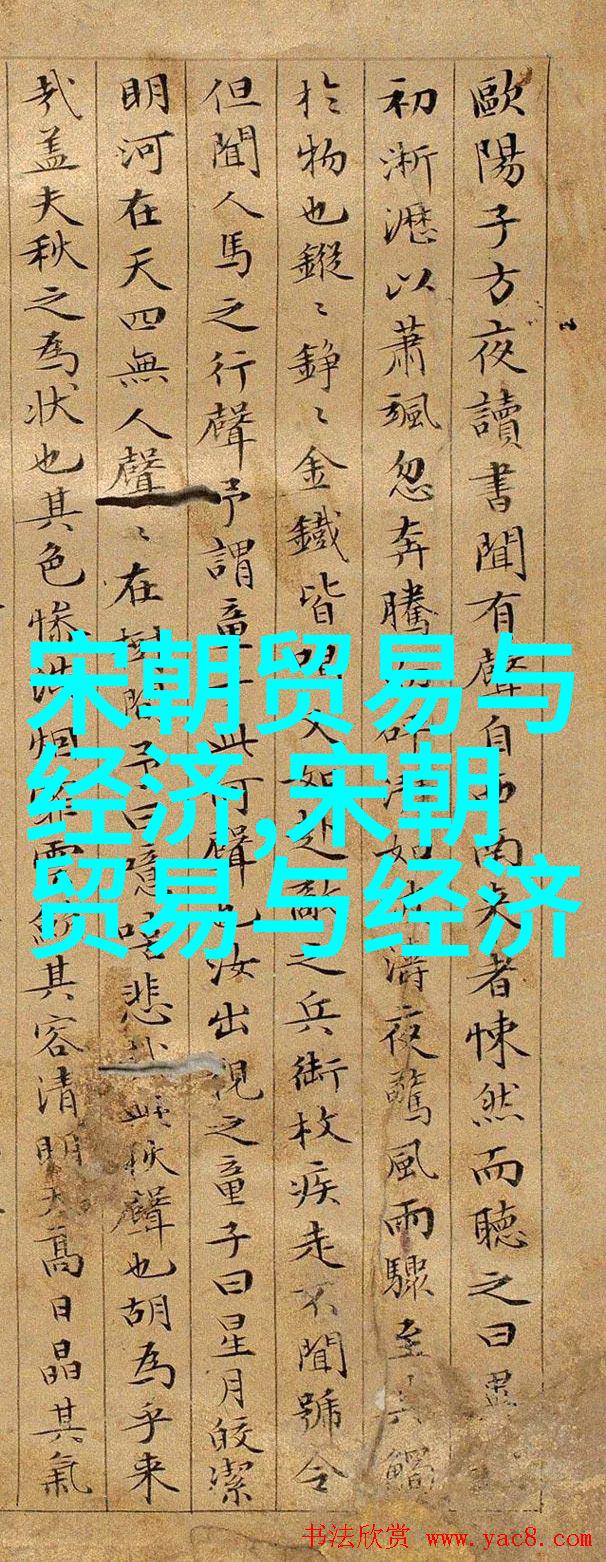 歐陽子方夜讀書聞有聲自南来者悚然而聽之曰異
初淅瀝以蕭颯忽奔騰砰湃如濤夜驚風雨驟至其觸
於物也鏦〻錚〻金鐵皆又如赴敵之兵銜枚疾走不聞號令
但聞人馬之行聲予謂童子此何聲也汝出視之童子曰星月皎潔
明河在天四無人聲〻在樹間予曰噫嘻悲哉此秋聲也胡為乎来
哉盖夫秋之為状也其色慘淡烟霏雲斂其容清明天高日晶其氣
宋朝贸易与
经济,宋朝
贸易与经济
书法欣赏 www.yac8.com